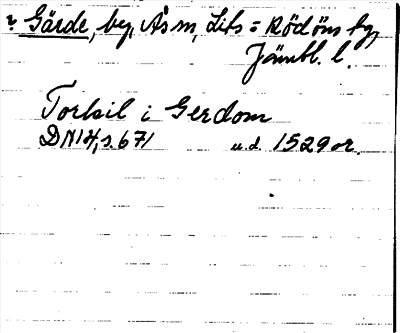 Gärde, by, Ås sn, Lits = Rödöns tg,
Jämtl. l.
Torkil i Gerdom
DN14, s. 671 u.d. 1529 or.